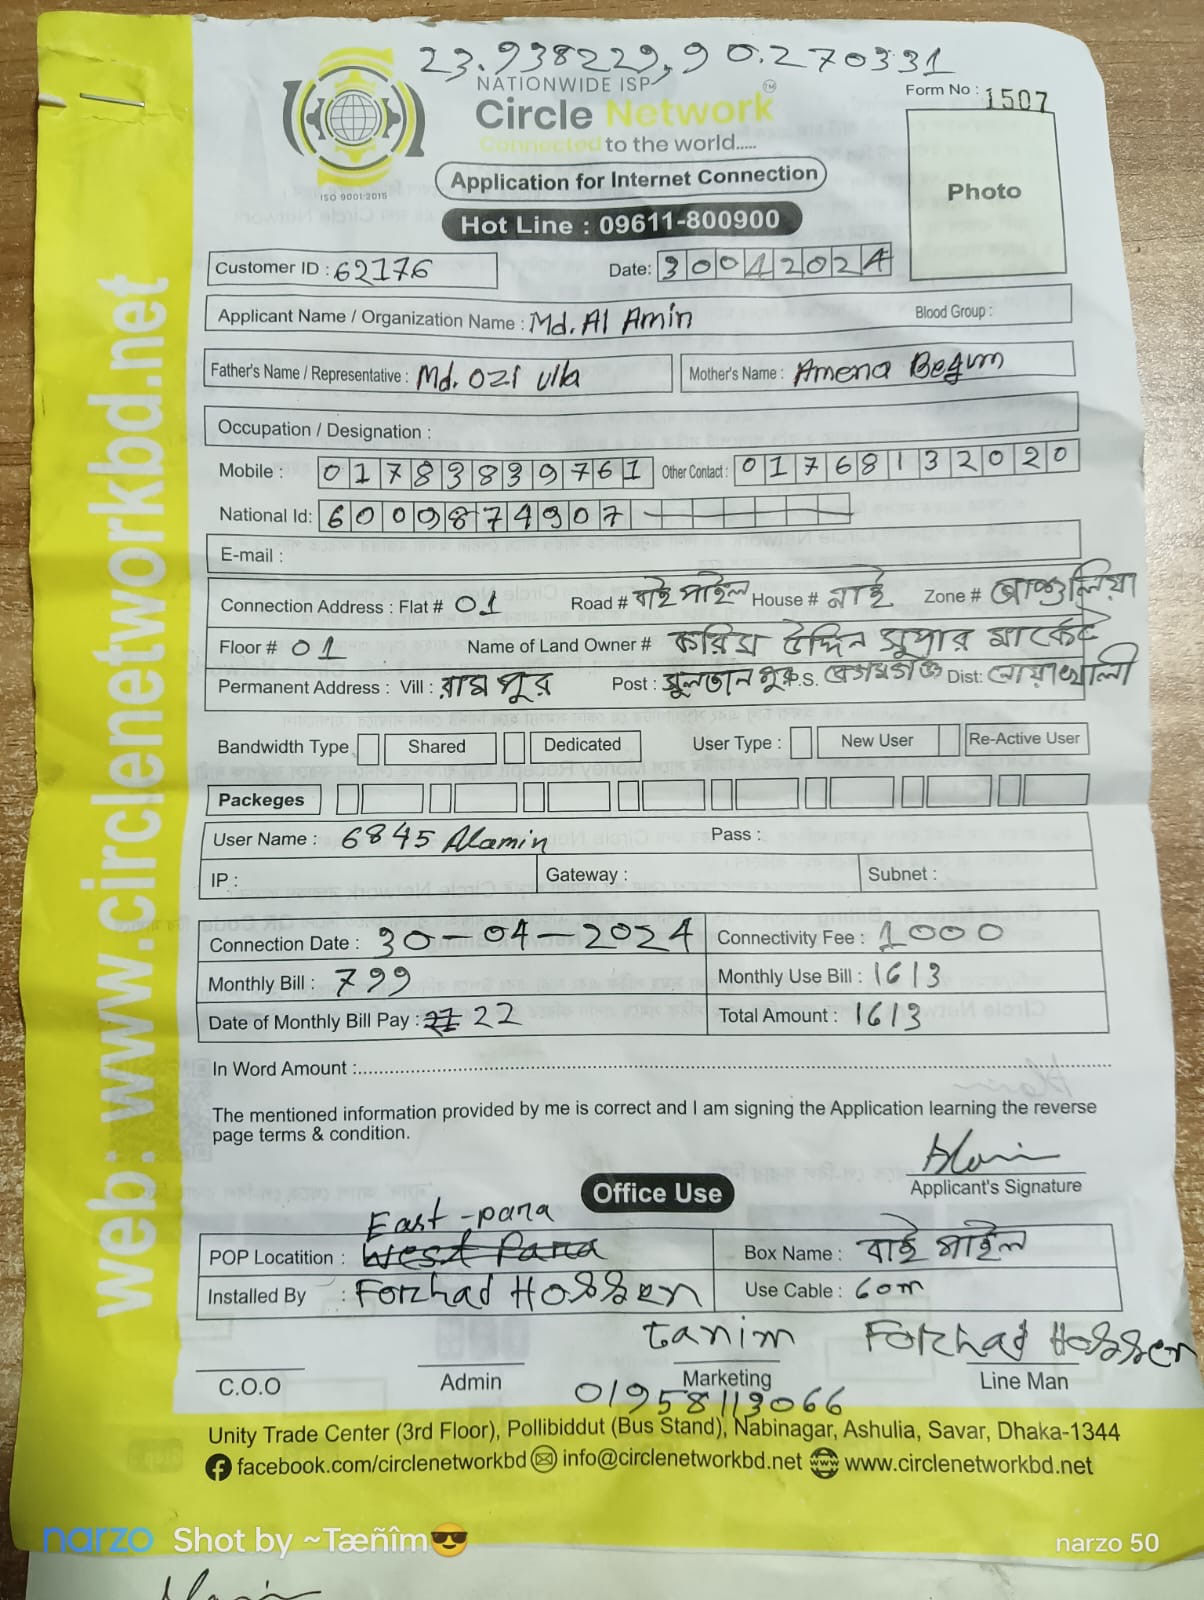 23.938229,90.270331
NATIONWIDE ISP
Circle Network TM
Connected to the world.....
ISO 9001:2015
Form No : 1507
Photo
Application for Internet Connection
Hot Line : 09611-800900
Customer ID : 62176 Date: 30042024
Applicant Name / Organization Name : Md. Al Amin Blood Group :
Father's Name / Representative : Md. Ozi ulla Mother's Name : Amena Begum
Occupation / Designation :
Mobile : 01783839761 Other Contact : 01768132020
National Id: 6009874907
E-mail :
Connection Address : Flat # 01 Road # বাইপাইল House # নাই Zone # আশুলিয়া
Floor # 01 Name of Land Owner # করিম উদ্দিন সুপার মার্কেট
Permanent Address : Vill : রামপুর Post : সুলতানপুর P.S. বেগমগঞ্জ Dist: নোয়াখালী
Bandwidth Type Shared Dedicated User Type : New User Re-Active User
Packeges
User Name : 6845 Alamin Pass :
IP : Gateway : Subnet :
Connection Date : 30-04-2024 Connectivity Fee : 1000
Monthly Bill : 799 Monthly Use Bill : 1613
Date of Monthly Bill Pay : 22 Total Amount : 1613
In Word Amount :
The mentioned information provided by me is correct and I am signing the Application learning the reverse
page terms & condition.
Alamin
Applicant's Signature
Office Use
East-para
POP Locatition : West Para Box Name : বাইপাইল
Installed By : Forhad Hossen Use Cable : 60m
tanim Forhad Hossen
C.O.O Admin Marketing Line Man
01958113066
Unity Trade Center (3rd Floor), Pollibiddut (Bus Stand), Nabinagar, Ashulia, Savar, Dhaka-1344
facebook.com/circlenetworkbd info@circlenetworkbd.net www.circlenetworkbd.net
web: www.circlenetworkbd.net
narzo Shot by ~Tæñîm😎 narzo 50